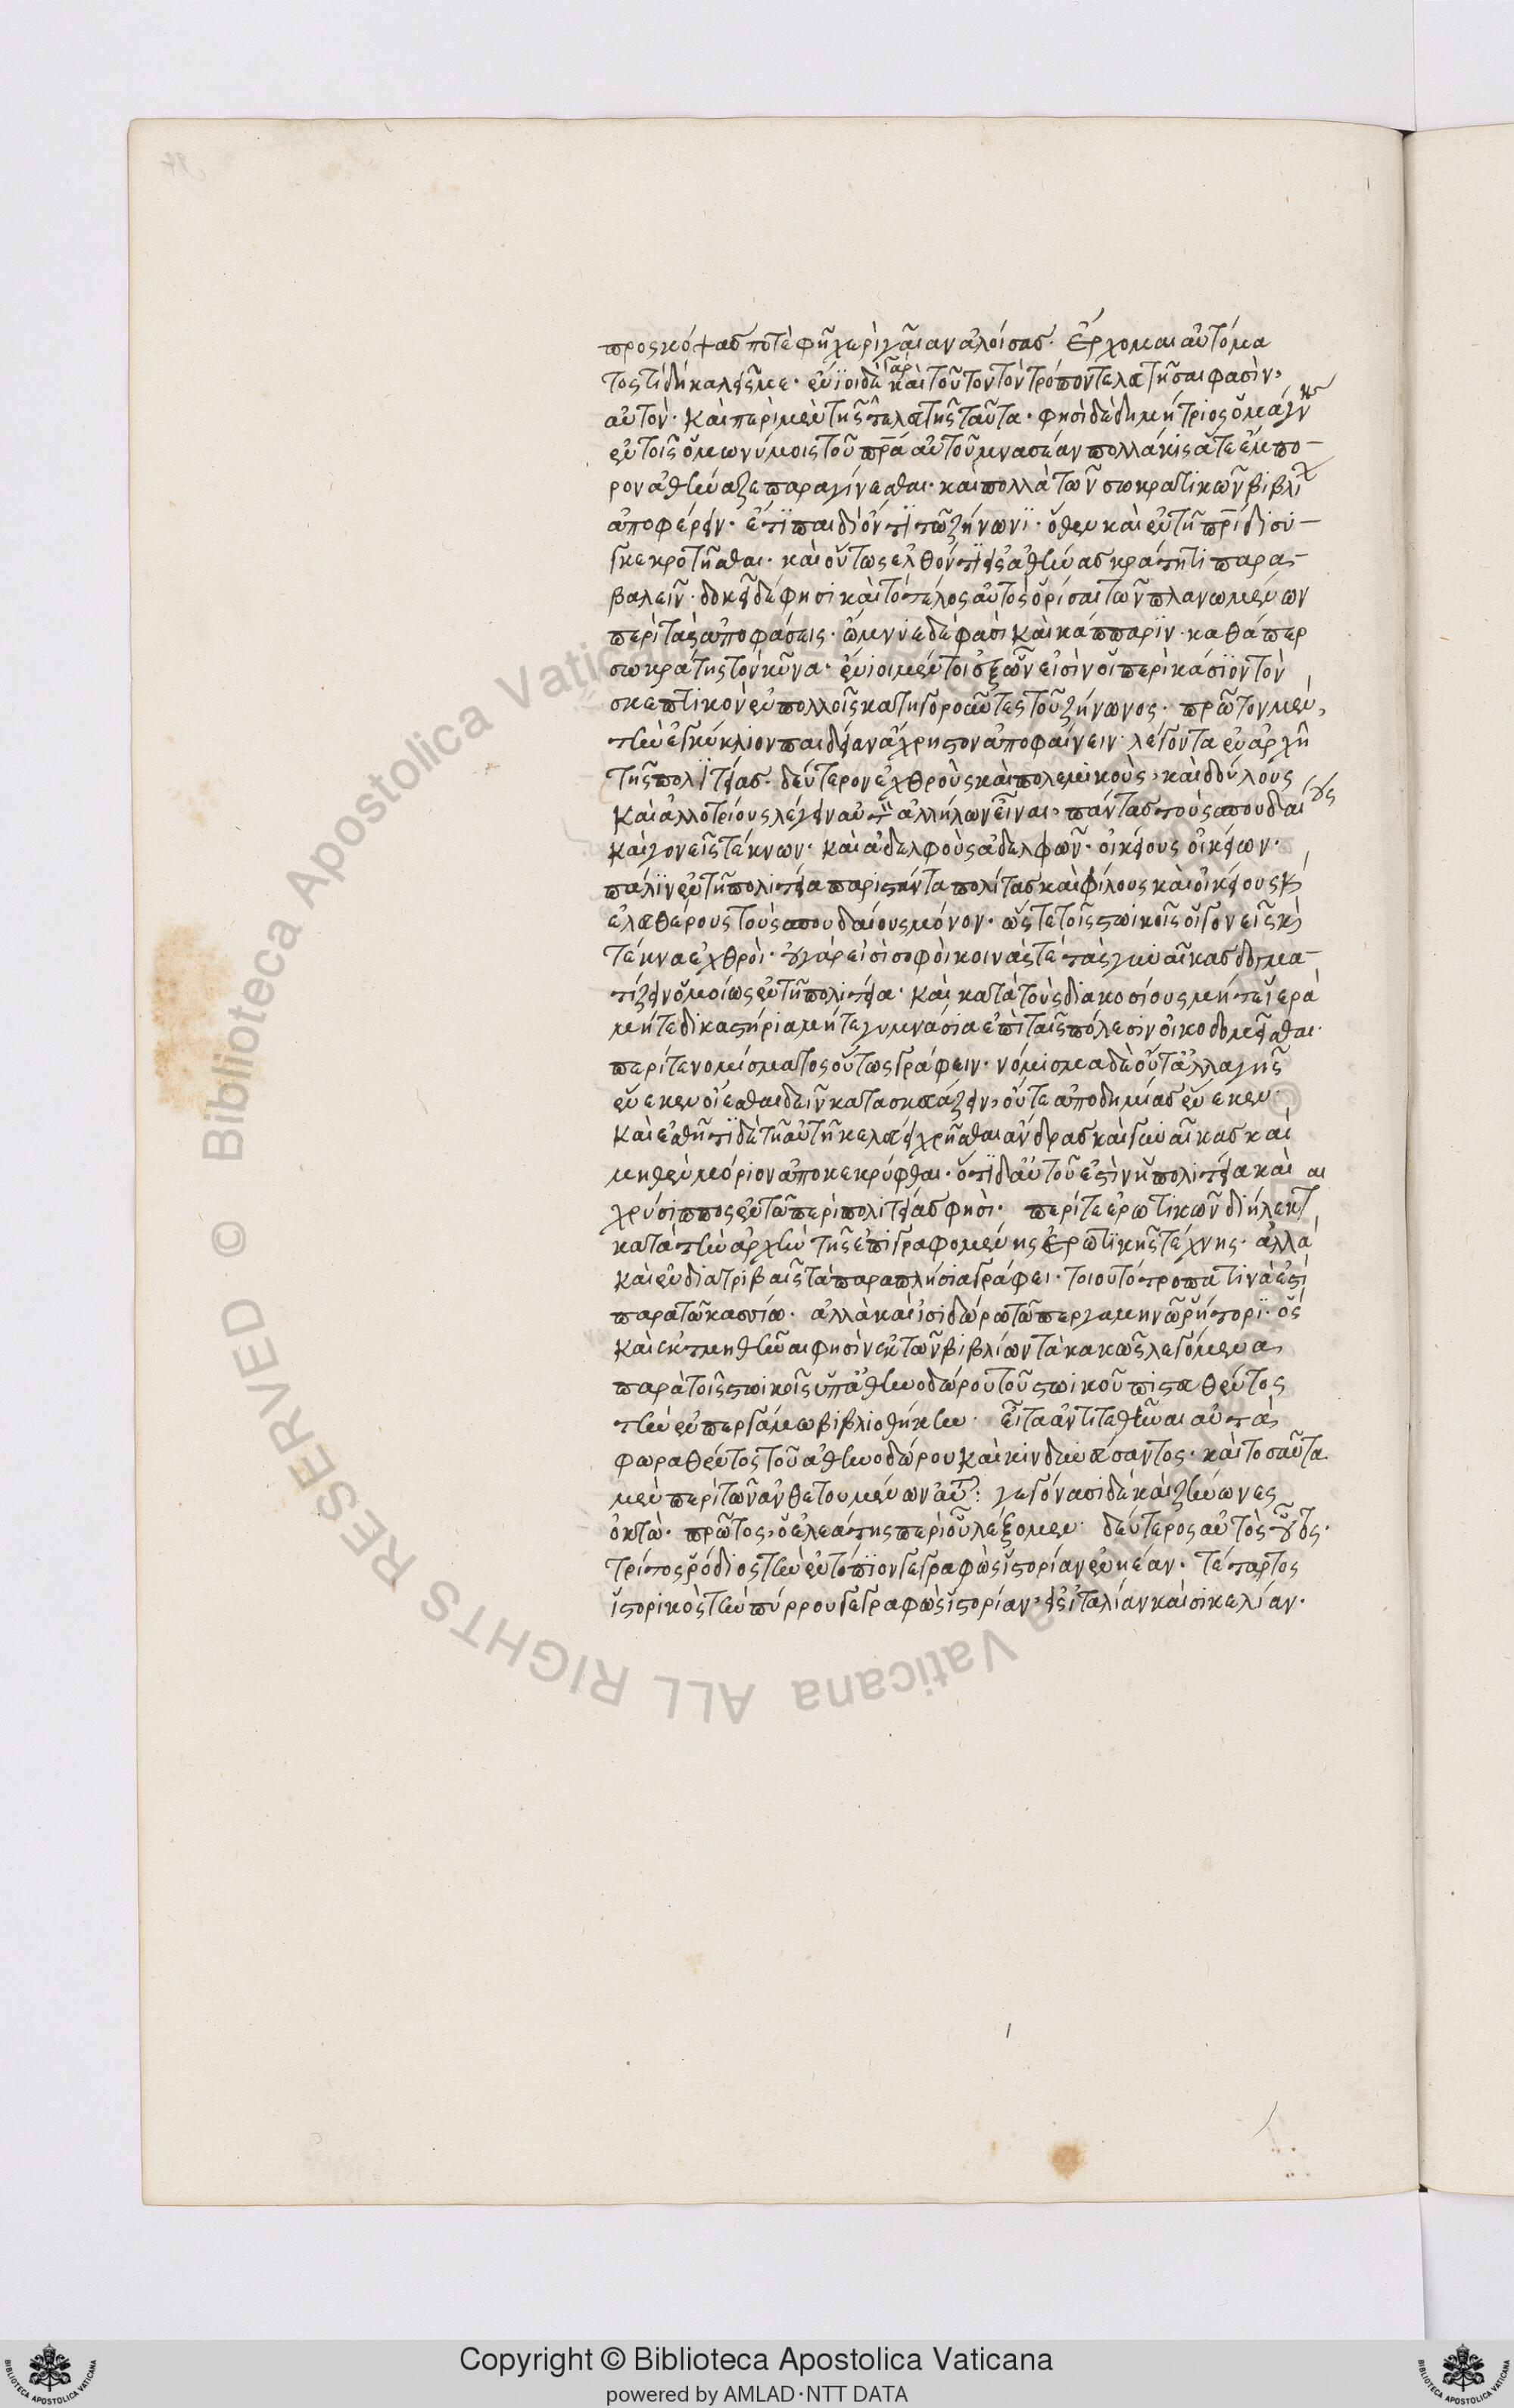 προσκόψας ποτὲ φῆ χερὶ γᾶιαν ἀλοίσας· ἔρχομαι αὐτόμα
τος τί δὴ καλεῖς με· ἔνιοι δὲ γὰρ καὶ τοῦτον τὸν τρόπον τελευτῆσαι φασὶν,
αὐτόν· καὶ περὶ μὲν τῆς τελευτῆς ταῦτα· φησὶ δὲ δημήτριος ὁ μάγνης
ἐν τοῖς ὁμωνύμοις τοῦ πρα αὐτοῦ μνασέαν πολλάκις ἅτε ἔμπο-
ρον ἀθήναζε παραγίνεσθαι· καὶ πολλὰ τῶν σωκρατικῶν βιβλι
ἀποφέρειν· ἔτι παιδὶ ὄντι τῷ ζήνωνι· ὅθεν καὶ ἐν τῆ πρίδι συ-
γκεκροτῆσθαι· καὶ οὕτως ἐλθόντι εἰς ἀθήνας κράτητι παρα-
βαλεῖν· δοκεῖ δέ φησι καὶ τὸ τέλος αὐτὸς ὁρίσαι τῶν πλανωμένων
περὶ τὰς ἀποφάσεις· ὤμνυε δέ φασι καὶ κάππαριν· καθάπερ
σωκράτης τὸν κύνα· ἔνιοι μέντοι ἐξ ὧν εἰσὶν οἱ περὶ κάσιον τὸν
σκεπτικὸν ἐν πολλοῖς κατηγοροῦντες τοῦ ζήνωνος· πρῶτον μὲν,
τὴν ἐγκύκλιον παιδείαν ἄχρηστον ἀποφαίνειν λέγοντα ἐν ἀρχῆ
τῆς πολιτείας· δεύτερον ἐχθροὺς καὶ πολεμικοὺς, καὶ δούλους
καὶ ἀλλοτρίους λέγειν αὐτ ἀλλήλων εἶναι· πάντας τοὺς σπουδαίους
καὶ γονεῖς τέκνων· καὶ ἀδελφοὺς ἀδελφῶν· οἰκείους οἰκείων·
πάλιν ἐν τῆ πολιτεία παριστάντα πολίτας καὶ φίλους καὶ οἰκείους καὶ
ἐλευθέρους τοὺς σπουδαίους μόνον· ὥστε τοῖς στωικοῖς οἱ γονεῖς καὶ
τέκνα ἐχθροί· οὐ γάρ εἰσι σοφοὶ κοινάς τε τὰς γυναῖκας δογμα-
τίζειν ὁμοίως ἐν τῆ πολιτεία· καὶ κατὰ τοὺς διακοσίους μήτε ἱερὰ
μήτε δικαστήρια μήτε γυμνάσια ἐπὶ ταῖς πόλεσιν οἰκοδομεῖσθαι·
περί τε νομίσματος οὕτως γράφειν· νόμισμα δὲ οὔτ᾽ ἀλλαγῆς
ἕνεκεν οἴεσθαι δεῖν κατασκευάζειν, οὔτε ἀποδημίας ἕνεκεν·
καὶ ἐσθῆτι δὲ τῆ αὐτῆ κελεύει χρῆσθαι ἄνδρας καὶ γυναῖκας καὶ
μηθὲν μόριον ἀποκεκρύφθαι· ὅτι δ᾽ αὐτοῦ ἐστὶν ἡ πολιτεία καὶ
χρύσιππος ἐν τῶ περὶ πολιτείας φησί· περί τε ἐρωτικῶν διήλεκται
κατὰ τὴν ἀρχὴν τῆς ἐπιγραφομένης ἐρωτικῆς τέχνης· ἀλλὰ
καὶ ἐν διατριβαῖς τὰ παραπλήσια γράφει· τοιουτότροπά τινά ἐστι
παρὰ τῶ κασσίω· ἀλλὰ καὶ ἰσιδώρω τῶ περγαμηνῶ ῥήτορι· ὅς
καὶ ἐκτμηθῆναι φησὶν ἐκ τῶν βιβλίων τὰ κακῶς λεγόμενα
παρὰ τοῖς στωικοῖς ὑπ᾽ ἀθηνοδώρου τοῦ στωικοῦ πιστευθέντος
τὴν ἐν περγάμω βιβλιοθήκην· εἶτα ἀντιτεθῆναι αὐτὰ
φωραθέντος τοῦ ἀθηνοδώρου καὶ κινδυνεύσαντος· καὶ τοσαῦτα
μὲν περὶ τῶν ἀνθετουμένων αὐτ: γεγόνασι δὲ καὶ ζήνωνες
ὀκτώ· πρῶτος, ὁ ἐλεάτης περὶ οὗ λέξομεν· δεύτερος αὐτὸς οὗτος·
τρίτος ῥόδιος τὴν ἐντόπιον γεγραφὼς ἱστορίαν ἑνιαίαν· τέταρτος
ἱστορικὸς τὴν πύρρου γεγραφὼς ἱστορίαν, εἰς ἰταλίαν καὶ σικελίαν·
Copyright © Biblioteca Apostolica Vaticana
powered by AMLAD·NTT DATA